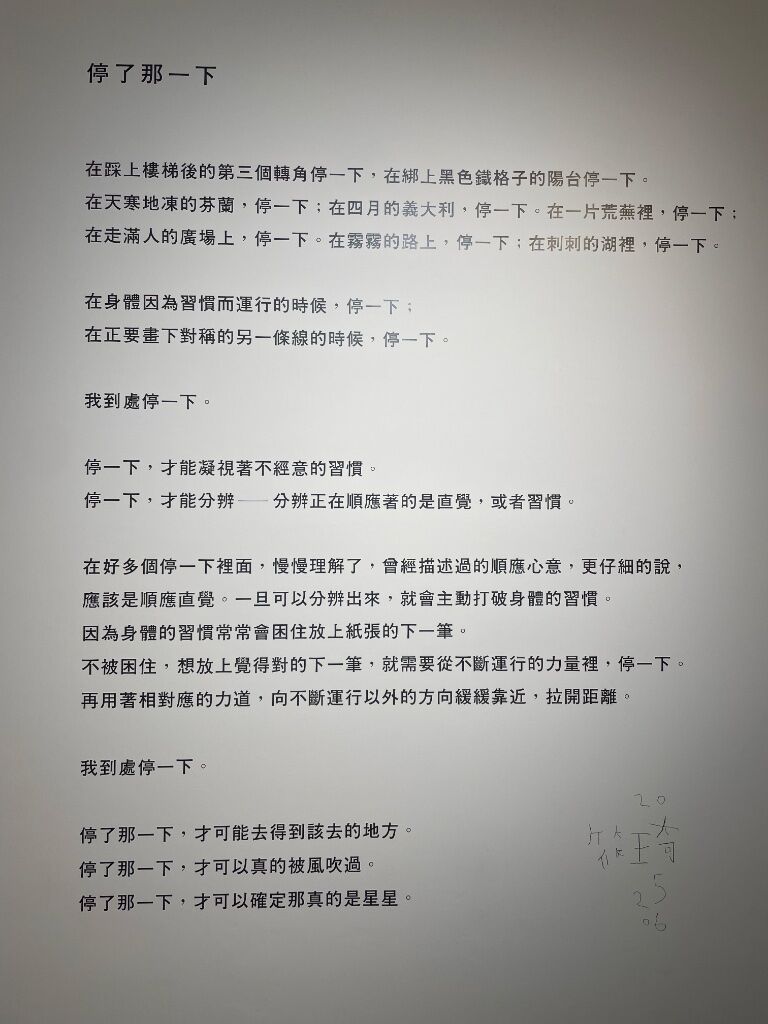 停了那一下
在踩上樓梯後的第三個轉角停一下，在綁上黑色鐵格子的陽台停一下。
在天寒地凍的芬蘭，停一下；在四月的義大利，停一下。在一片荒蕪裡，停一下；
在走滿人的廣場上，停一下。在霧霧的路上，停一下；在刺刺的湖裡，停一下。
在身體因為習慣而運行的時候，停一下；
在正要畫下對稱的另一條線的時候，停一下。
我到處停一下。
停一下，才能凝視著不經意的習慣。
停一下，才能分辨——分辨正在順應著的是直覺，或者習慣。
在好多個停一下裡面，慢慢理解了，曾經描述過的順應心意，更仔細的說，
應該是順應直覺。一旦可以分辨出來，就會主動打破身體的習慣。
因為身體的習慣常常會困住放上紙張的下一筆。
不被困住，想放上覺得對的下一筆，就需要從不斷運行的力量裡，停一下。
再用著相對應的力道，向不斷運行以外的方向緩緩靠近，拉開距離。
我到處停一下。
停了那一下，才可能去得到該去的地方。
停了那一下，才可以真的被風吹過。
停了那一下，才可以確定那真的是星星。
20
25
06